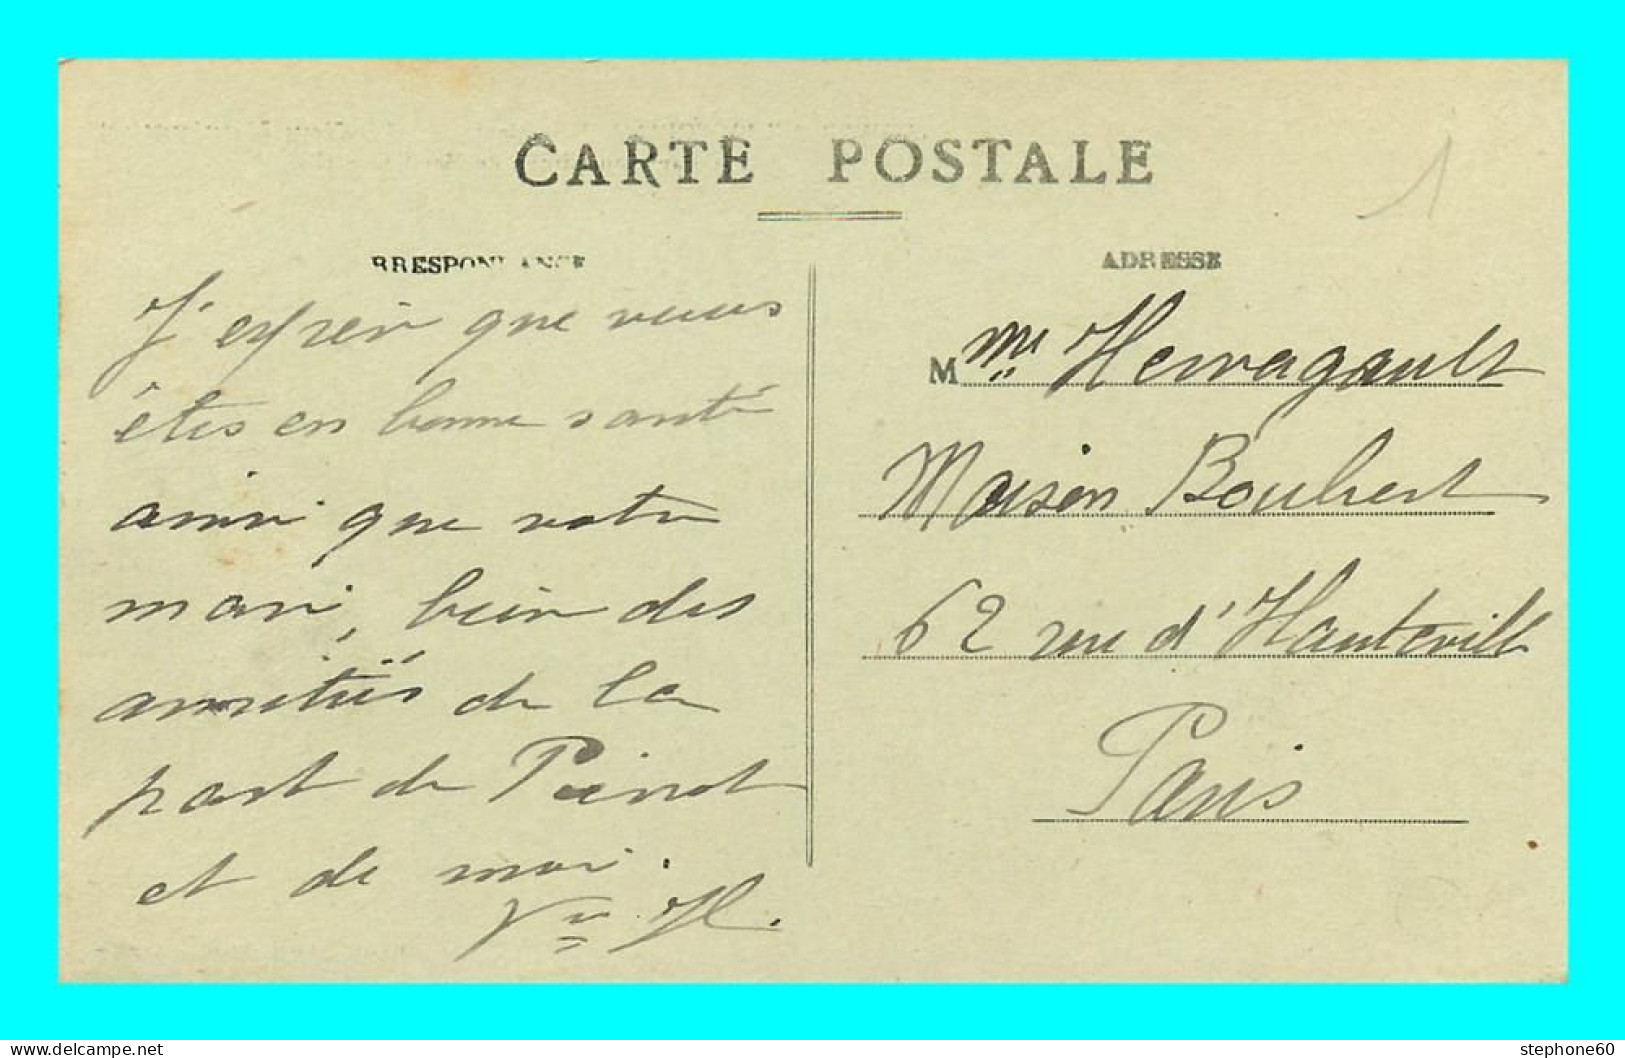 CARTE POSTALE
RRESPONDANCE
J'espère que vous
êtes en bonne santé
ainsi que votre
mari, bien des
amitiés de la
part de Poinot
et de moi.
Vve H.
ADRESSE
M me Herragault
Maison Boubert
62 rue d'Hauteville
Paris
1
stephone60